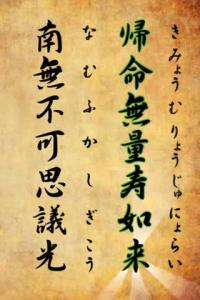 きみょうむりょうじゅにょらい
帰命無量寿如来
なむふかしぎこう
南無不可思議光